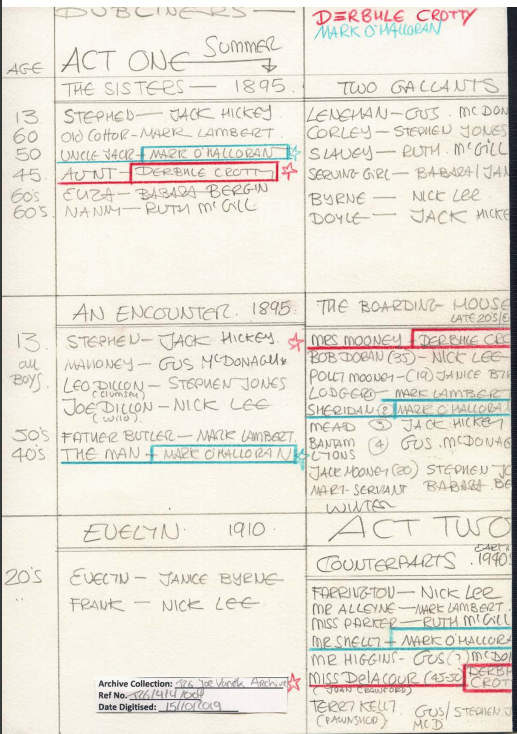 DUBLINERS
DERBHLE CROTTY
MARK O'HALLORAN
AGE
ACT ONE Summer
THE SISTERS — 1895.
13 STEPHEN — JACK HICKEY
60 Old Cottor - MARK LAMBERT
50 UNCLE JACK - MARK O'HALLORAN
45 AUNT - DERBHLE CROTTY
60's ELIZA - BABARA BERGIN
60's NANNY - RUTH McGILL
TWO GALLANTS
LENEHAN - GUS. McDON
CORLEY - STEPHEN JONES
SLAVEY - RUTH McGILL
SERVING GIRL - BABARA/JAN
BYRNE - NICK LEE
DOYLE - JACK HICKE
AN ENCOUNTER. 1895.
13 STEPHEN - JACK HICKEY
all BOYS. MAHONEY - GUS McDONAGH
LEO DILLON - STEPHEN JONES
(clumsey)
JOE DILLON - NICK LEE
(wild)
50's FATHER BUTLER - MARK LAMBERT.
40's THE MAN - MARK O'HALLORAN
THE BOARDING HOUSE
LATE 20'S/E
MRS MOONEY - DERBHLE CRO
BOB DORAN (35) - NICK LEE
POLLY MOONEY - (19) JANICE BY
LODGER - MARK LAMBER
SHERIDAN (2) MARK O'HALLORA
MEAD (3) JACK HICKEY
BANTAM LYONS (4) GUS. McDONAG
JACK MOONEY (20) STEPHEN JO
MARY-SERVANT BABARA BE
WINTER
EVELYN. 1910.
20's EVELYN - JANICE BYRNE
" FRANK - NICK LEE
ACT TWO
COUNTERPARTS. 1940
FARRINGTON - NICK LEE
MR ALLEYNE - MARK LAMBERT.
MISS PARKER - RUTH McGILL
MR SHELLY - MARK O'HALLORA
MR HIGGINS - GUS(?) McDO
MISS DelACOUR (45-50) DERBH CROT
(JOAN CRAWFORD)
TERRY KELLY GUS/STEPHEN J
(PAWNSHOP) McD.
Archive Collection: T26 Joe Vanek Archive
Ref No.
Date Digitised: 15/10/2019